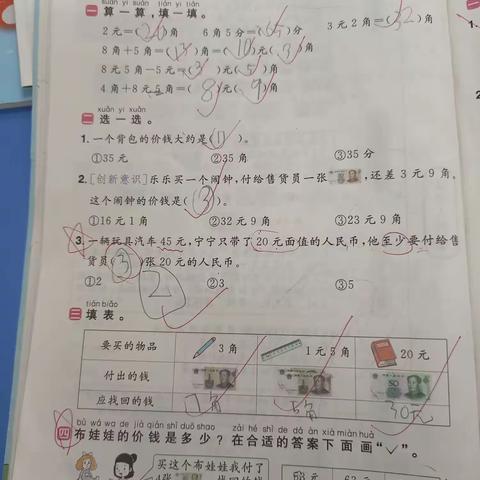 suàn yi suàn, tián yi tián
一 算一算，填一填。
2元=(20)角 6角5分=(65)分 3元2角=(32)角
8角+5角=(13)角=(1)元(3)角
8元5角-5元=(3)元(5)角
4角+8元5角=(8)元(9)角
xuǎn yi xuǎn
二 选一选。
1. 一个背包的价钱大约是(①)。
①35元 ②35角 ③35分
2. [创新意识]乐乐买一个闹钟，付给售货员一张，还差3元9角。
这个闹钟的价钱是(③)。
①16元1角 ②32元9角 ③23元9角
3. 一辆玩具汽车45元，宁宁只带了20元面值的人民币，他至少要付给售
货员(③)张20元的人民币。
①2 ②3 ③5
2
tián biǎo
三 填表。
要买的物品 3角 1元5角 20元
付出的钱
应找回的钱 7角 5角 30元
bù wá wa de jià qián shì duō shao zài hé shì de dá àn xià miàn huà
四 布娃娃的价钱是多少？在合适的答案下面画“✓”。
买这个布娃娃我付了